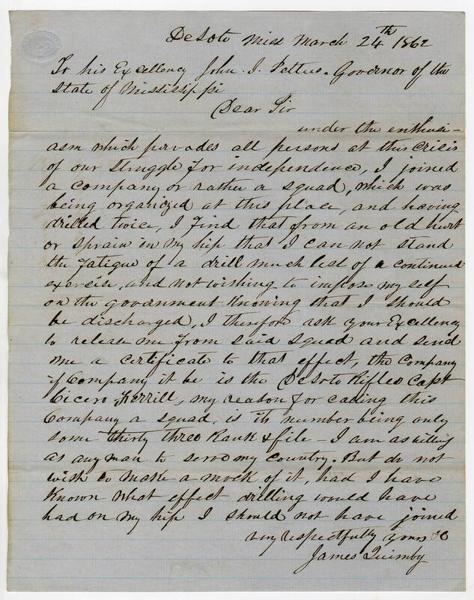 DeSoto Miss March 24th 1862
To his Excellency John J. Pettus. Governor of the
State of Mississippi
Dear Sir
under the enthusi-
asm which pervades all persons at this crisis
of our struggle for independence, I joined
a company or rather a squad, which was
being organized at this place, and having
drilled twice, I find that from an old hurt
or sprain in my hip that I can not stand
the fatigue of a drill much less of a continued
exercise, and not wishing to impose my self
on the government knowing that I should
be discharged, I therefore ask your Excellency
to release me from said squad and send
me a certificate to that effect, the Company
if Company it be is the DeSoto Rifles Capt
Cicero my reason for calling this
Company a squad, is its number being only
some thirty three Rank & file – I am as willing
as any man to serve my country. But do not
wish to make a mock of it, had I have
known what effect drilling would have
had on my hip I should not have joined
very respectfully yours &c
James Quimby